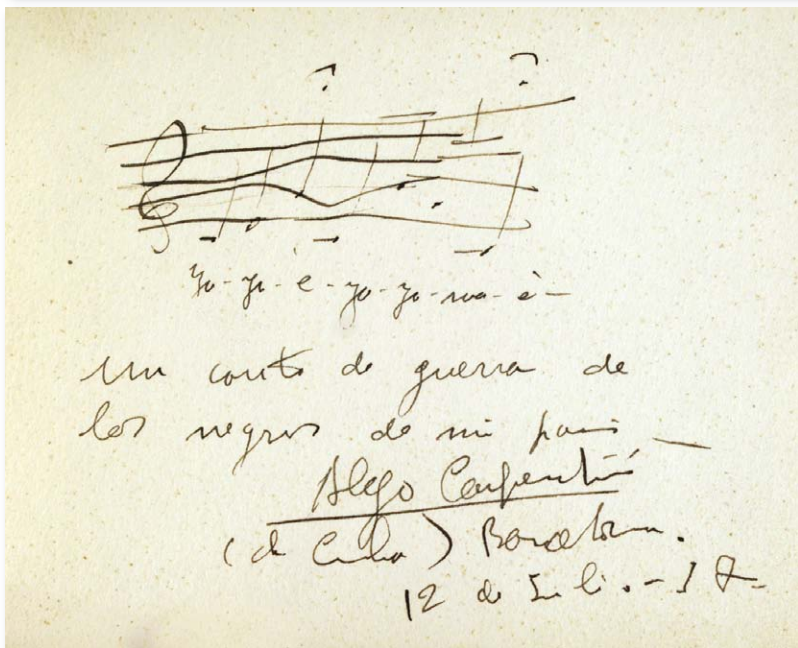 yo-yo-é-yo-yo-ma-é-
Un canto de guerra de
los negros de mi país —
Alejo Carpentier
(de Cuba) Barcelona.
12 de Julio.-37-